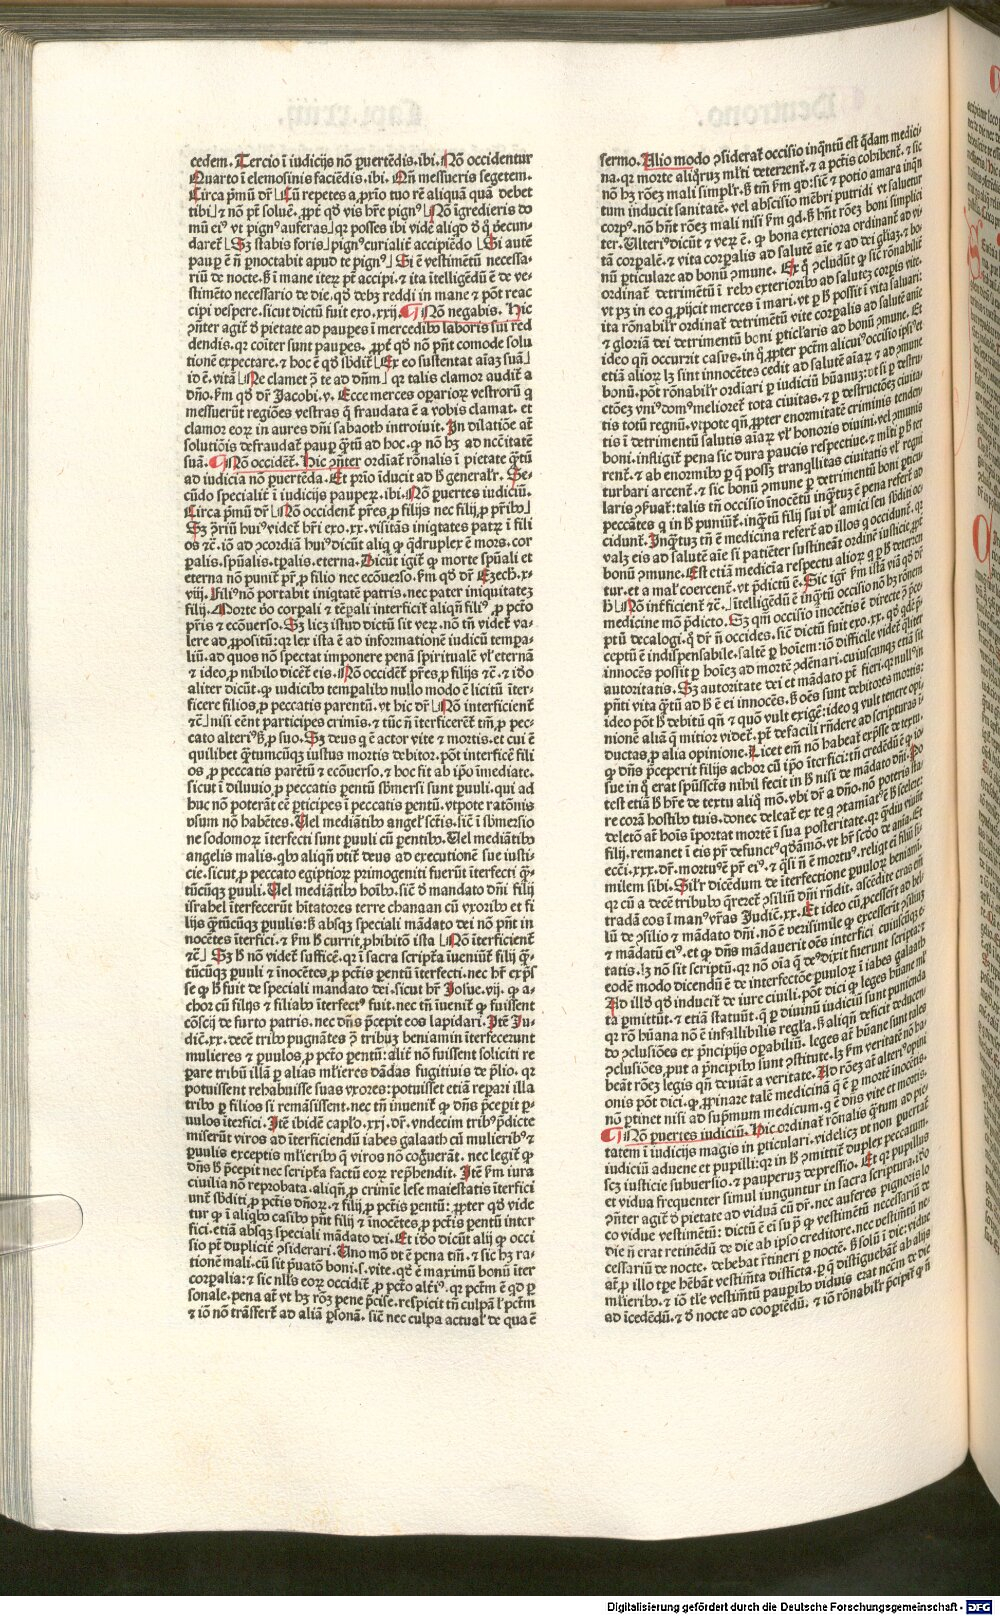 cedem. Tercio ī iudicijs nō ꝑuertēdis. ibi. Nō occidentur
Quarto ī elemosinis faciēdis. ibi. Qn̄ messueris segetem.
Circa pͥmū dr̄ Cū repetes a ꝓxīo tuo rē aliquā quā debet
tibi ⁊ nō pt̄ soluē. ꝓpt̄ qd̓ vis hr̄e pignꝰ Nō īgredieris do
mū eiꝰ vt pignꝰ auferas qꝛ posses ibi vidē aliqd̓
daret Sꝫ stabis foris pignꝰ curialit̄ accipiēdo Si autē
pauꝑ ē nō ꝑnoctabit apud te pignꝰ Si ē vestimētū necessa
riū de nocte. ī mane iteꝝ pt̄ accipi. ⁊ ita ītelligēdū ē de ve
stimēto necessario de die. qd̓ debꝫ reddi in mane ⁊ pōt reac
cipi vespere. sicut dictū fuit exo. xxij. Nō negabis. Hic
ꝯn̄ter agit̄ pietate ad pauꝑes ī mercedibꝰ laboris sui red
dendis. qꝛ coiter sunt pauꝑes. ꝓpt̄ qd̓ nō pn̄t comode solu
tionē expectare. ⁊ hoc ē qd̓ Ex eo sustentat aīaꝫ suā
id ē. vitā Ne clamet ꝯ̄ te ad dn̄m qꝛ talis clamor audit̄ a
dn̄o. fm qd̓ dr̄ Jacobi. v. Ecce merces oꝑarioꝝ vestroꝝ q̄
messuerūt regiōes vestras q̄ fraudata ē a vobis clamat. et
clamor eoꝝ in aures dn̄i sabaoth introiuit. In dilatiōe at̄
solutiōis defraudat̄ pauꝑ q̄tū ad hoc. qꝛ nō hꝫ ad nccitatē
suā. Nō occidet̄. Hic ꝯn̄ter ordiat̄ rōnalis ī pietate q̄tū
ad iudicia nō ꝑuertēda. Et pͥo īducit ad generalr̄. Se
cūdo specialit̄ ī iudicijs pauꝑeꝝ. ibi. Nō ꝑuertes iudiciū.
Circa pͥmū dr̄ Nō occident̄ pr̄es ꝓ filijs nec filij ꝓ pr̄ibꝰ
Sꝫ ꝯriū huiꝰ videt̄ hr̄i exo. xx. visitās iniqtates patꝝ ī fili
os ⁊c̄. iō ad ꝯcordiā huiꝰ dicūt aliq̓ qꝛ qͣdruplex ē mors. cor
ꝑalis. spūalis. tꝑalis. eterna. Dicūt igit̄ qꝛ morte spūali et
eterna nō punit̄ pr̄ ꝓ filio nec ecōuerso. fm qd̓ dr̄ Ezech. x-
viij. Filiꝰ nō portabit iniqtatē patris. nec pater iniquitatez
filij. Morte ꝟo corꝑali ⁊ tēꝑali interficit̄ aliqn̄ filiꝰ ꝓ pctō
pr̄is ⁊ ecōuerso. Sꝫ licꝫ istud dictū sit veꝝ. nō tn̄ videt̄ va-
lere ad ꝓpositū: qꝛ lex ista ē ad informationē iudicū tempa-
liū. ad quos nō spectat imponere penā spiritualē vl̓ eternā
⁊ ideo ꝓ nihilo diceret̄ eis. Nō occidēt̄ pr̄es ꝓ filijs ⁊c̄. ⁊ iō
aliter dicūt. qꝛ iudicibꝰ temꝑalibꝰ nullo modo ē licitū īter-
ficere filios ꝓ peccatis parentū. vt hic dr̄ Nō interficient̄
⁊c̄ nisi eēnt participes crimis. ⁊ tūc n̄ īterficeret̄ tm̄ ꝓ pec-
cato alteriꝰ ꝓ suo. Sꝫ deus q̄ ē actor vite ⁊ mortis. et cui ē
quilibet q̄tumcūqꝫ iustus mortis debitor. pōt interficē fili
os ꝓ peccatis parētū ⁊ ecōuerso. ⁊ hoc fit ab ip̄o īmediate.
sicut ī diluuio ꝓ peccatis ꝑentū sb̓mersi sunt puuli. qui ad
huc nō poterāt cē ꝑticipes ī peccatis ꝑentū. vtpote ratōnis
vsum nō habētes. Uel mediātibꝰ angel̓ sctis: siē ī sb̓mersio
ne sodomoꝝ īterfecti sunt puuli cū ꝑentibꝰ. Uel mediātibꝰ
angelis malis. qbꝰ aliqn̄ vtit̄ deus ad executionē sue iusti-
cie. sicut ꝓ peccato egiptioꝝ primogeniti fuerūt īterfecti q̄-
tūcūqꝫ puuli. Uel mediātibꝰ hoībꝰ. siē mandato dn̄i filij
israhel īterfecerūt hītatores terre chanaan cū vxoribꝰ et fi
lijs q̄tūcūqꝫ puulis: absqꝫ speciali mādato dei nō pn̄t in
nocētes īterfici. ⁊ fm currit ꝓhibitō ista Nō īterficient̄
⁊c̄ Sꝫ nō videt̄ sufficē. qꝛ ī sacra scripta iueniūt̄ filij q̄-
tūcūqꝫ puuli ⁊ īnocētes ꝓ pctis ꝑentū īterfecti. nec hr̄ exp̄s
se qꝛ fuit de speciali mandato dei. sicut hr̄ Josue. vij. qꝛ a-
chor cū filijs ⁊ filiabꝰ īterfectꝰ fuit. nec tn̄ iuenit̄ qꝛ fuissent
cōscij de furto patris. nec dn̄s p̄cepit eos lapidari. Itē Ju-
diē. xx. decē tribꝰ pugnātes ꝯ̄ tribuꝫ beniamin īterfecerunt
mulieres ⁊ puulos ꝓ pctō ꝑentū: alit̄ nō fuissent soliciti re
ꝑare tribū illā ꝑ alias ml̓ieres dādas fugitiuis de p̄lio. qꝛ
potuissent rehabuisse suas vxores: potuisset etiā reꝑari illa
tribꝰ ꝑ filios si remāsissent. nec tn̄ inuenit̄ qꝛ dn̄s p̄cepit ꝑ-
uulos īterfici. Itē ibidē caplo. xxj. dr̄. vndecim tribꝰ p̄dicte
miserūt viros ad īterficiendū iabes galaath cū mulieribꝰ ⁊
puulis exceptis ml̓ieribꝰ q̄ viros nō cogͦuerāt. nec legit̄ qꝛ
dn̄s p̄cepit nec scripta factū eoꝝ rep̄hendit. Itē fm iura
ciuilia nō reprobata. aliqn̄ ꝓ crimīe lese maiestatis īterfici
unt̄ sb̓diti ꝓ pctis dn̄oꝝ. ⁊ filij ꝓ pctis ꝑentū: ꝓpter qd̓ vide
tur qꝛ ī aliqbꝰ casibꝰ pn̄t filij ⁊ īnocētes ꝓ pctis ꝑentū inter
fici. etiā absqꝫ speciali mādato dei. Et iō dicūt alij qꝛ occi
sio pt̄ duplicit̄ ꝯsiderari. Uno mō vt ē pena tm̄. ⁊ sic hꝫ ra-
tionē mali. cū sit p̓uatō boni. s. vite. qd̓ ē maximū bonū īter
corꝑalia: ⁊ sic nll̓s eoꝝ occidit̄ ꝓ pctō alti̓ꝰ. qꝛ pctm̄ ē qd̓ ꝑ
sonale. pena at̄ vt hꝫ rōꝫ pene p̄cise. respicit tm̄ culpā l̓ pctm̄
⁊ iō nō trāsfert̄ ad aliā ꝑsonā. siē nec culpa actual̓ de qua ē
sermo. Alio modo ꝯsiderat̄ occisio inq̄ntū est q̄dam medici-
na. qꝛ morte aliqͦruꝫ ml̓ti deterrent̄. ⁊ a pctis cohibent̄. ⁊ sic
nō hꝫ rōeꝫ mali simpl̓r. tm̄ fm qd: siē ⁊ potio amara inq̄n
tum inducit sanitatē. vel abscisio mēbri putridi vt saluetur
corpꝰ. nō hn̄t rōeꝫ mali nisi fm qd. hn̄t rōeꝫ boni simplici
ter. Ulteriꝰ dicūt ⁊ veꝝ ē. qꝛ bona exteriora ordinant̄ ad vi
tā corꝑalē. ⁊ vita corꝑalis ad salutē aīe ⁊ ad dei gl̓iaꝫ. ⁊ bo-
nū ꝑticulare ad bonū ꝯmune. Ex q̓ ꝯcludūt qꝛ sic rōnabilit̄
ordinat̄ detrimētū ī rebꝰ exterioribꝰ ad salutez corꝑis vite.
vt pꝫ in eo q̓ ꝓijcit merces ī mari. vt ꝑ possit ī vita saluari:
ita rōnabilr̄ ordinat̄ detrimētū vite corꝑalis ad salutē anīe
⁊ gloriā dei. detrimētū boni ꝑticl̓aris ad bonū ꝯmune. Et
ideo qn̄ occurrit casus. in q̓ ꝓpter pctm̄ alicuiꝰ occisio ipsiꝰ et
etiā alioꝝ lꝫ sint innocētes cedit ad salutē aīaꝝ ⁊ ad ꝯmune
bonū. pōt rōnabilr̄ ordīari ꝑ iudiciū hūanuꝫ: vt si ꝑ destru
ctōeꝫ vniꝰ domꝰ melioret̄ tota ciuitas. ⁊ ꝑ destructōeꝫ ciuita
tis totū regnū. vtpote qn̄ ꝓpter enormitatē criminis tenden
tis ī detrimētū salutis aīaꝝ vl̓ honoris diuini. vel ꝯmunis
boni. infligit̄ pena sic dura paucis respectiue. ⁊ ml̓ti ꝑ ter
rent̄. ⁊ ab enormibꝰ ꝑ q̄ possꝫ tranq̓llitas ciuitatis vl̓ regni
turbari arcent̄. ⁊ sic bonū ꝯmune ꝑ detrimentū boni ꝑticu
laris ꝯseruat̄: talis tn̄ occisio īnocētū inq̄tuꝫ ē pena refert̄ ad
peccātes q̓ in puniūt̄. inq̄tū filij sui vl̓ amici seu sb̓diti oc-
cidunt̄. Inq̄tuꝫ tn̄ ē medicina refert̄ ad illos q̓ occidunt̄. qꝛ
valꝫ eis ad salutē aīe si patiēter sustineāt ordinē iusticie. ꝓpt̄
bonū ꝯmune. Est etiā medicīa respectu alioꝝ q̓ ꝑ deterren
tur. et a mal̓ coercent̄. vt p̄dictū ē. Sic igr̄ fm istā viā qd̓ dr̄
Nō int̓ficient̄ ⁊c̄. ītelligēdū ē inq̄tū occisio nō hꝫ rōnem
medicine mō p̄dicto. Sꝫ qm̄ occisio īnocētis ē directe ꝯ̄ p̄ce
ptū decalogi. q̓ dr̄ n̄ occides. siē dictū fuit exo. xx. qd̓ qdē p̄
ceptū ē indispensabile. saltē ꝑ hoīem: iō difficile videt̄ qͣliter
innocēs possit ꝑ hoīeꝫ ad mortē ꝯdēnari. cuiuscunqꝫ etiā sit
autoritatis. Sꝫ autoritate dei et mādato pt̄ fieri. qꝛ nullꝰ in
pn̄ti vita q̄tū ad ē ei innocēs. oēs sunt debitores mortis:
ideo pōt debitū qn̄ ⁊ quō vult exigē: ideo q̓ vult tenere opi
nionē aliā q̄ mitior videt̄. pt̄ de facili rn̄dere ad scripturas ī
ductas ꝓ alia opinione. Licet em̄ nō habeat̄ exp̄sse de textu.
qꝛ dn̄s p̄ceperit filijs achor cū ip̄o īterfici: tn̄ credēdū ē qꝛ io
sue in q̓ erat spūssctūs nihil fecit in nisi de mādato dn̄i. Po
test etiā hr̄e de textu aliq̓ mō. vbi dr̄ a dn̄o. nō poteris sta
re corā hostibꝰ tuis. donec deleat̄ ex te q̓ ꝯtamiatꝰ ē scelere:
deletō at̄ hoīs īportat mortē ī sua posteritate. qꝛ q̄diu viuūt
filij. remanet ī eis pr̄ defunctꝰ qd̓ammō. vt hr̄ scd̓o de aīa. Et
ecci. xxx. dr̄. mortuꝰ ē pr̄ eiꝰ. ⁊ q̄si n̄ ē mortuꝰ. reliqt ei filiū si
milem sibi. Silr̄ dicēdum de īterfectione puuloꝝ beniamī.
qꝛ cū a decē tribubꝰ q̄reret̄ ꝯsiliū dn̄i rn̄dit. ascēdite cras em̄
tradā eos ī manꝰ vr̄as Judiē. xx. Et ideo cū ꝓcessert ad bel
lū de ꝯsilio ⁊ mādato dn̄i. nō ē verisimile qꝛ excesserīt ꝯsiliuꝫ
⁊ mādatū eiꝰ. et qꝛ dn̄s mādauerit oēs interfici cuiuscūqꝫ e
tatis. lꝫ nō sit scriptū. qꝛ nō oīa q̄ deꝰ dixit fuerunt scripta: ⁊
eodē modo dicendū ē de interfectōe puuloꝝ ī iabes galaath
Ad illd̓ qd̓ inducit̄ de iure ciuili. pōt dici qꝛ leges hūane ml̓
ta ꝑmittūt. ⁊ etiā statuūt. q̄ ꝑ diuinū iudiciū sunt punienda
qꝛ rō hūana nō ē īnfallibilis regl̓a. aliqn̄ deficit deducen-
do ꝯclusiōes ex p̄ncipijs oꝑabiliū. leges at̄ hūane sunt tales
ꝯclusiōes. ꝓut a p̄ncipibꝰ sunt ꝯstitute. lꝫ fm veritatē nō ha-
beāt rōeꝫ legis qn̄ deuiāt a veritate. Ad rōeꝫ at̄ alteriꝰ opini
onis pōt dici. qꝛ ꝓpinare talē medicinā q̄ ē ꝑ mortē īnocētis.
nō ꝑtinet nisi ad sup̄mum medicum. q̓ ē dn̄s vite et mortis.
Nō ꝑuertes iudiciū. Hic ordinat̄ rōnalis q̄ntum ad pie-
tatem ī iudicijs magis in ꝑticulari. videlicꝫ vt non ꝑuertat̄
iudiciū aduene et pupilli: qꝛ in ꝯmittit̄ duplex peccatum.
scꝫ iusticie subuersio. ⁊ pauperuꝫ depressio. Et qꝛ pupillus
et vidua frequenter simul iunguntur in sacra scriptura. iō
ꝯn̄ter agit̄ pietate ad viduā cū dr̄. nec auferes pignoris lo
co vidue vestimētū: dictū ē ei su p̄ qꝛ vestimētū necessariū de
die n̄ erat retinēdū de die ab ipso creditore. nec vestimētū ne
cessariū de nocte. debebat rtineri ꝑ nocte. solū ī die: vidue
at̄ ꝓ illo tꝑe hēbāt vestimēta disticta. ꝑ q̓ distiguebāt̄ ab alijs
ml̓ieribꝰ. ⁊ iō tl̓e vestimētū pauꝑibꝰ viduis erat nccm̄ de die
ad icedēdū. ⁊ nocte ad cooꝑiēdū. ⁊ iō rōnabilr̄ p̄cipit̄ qꝛ n̄
Digitalisierung gefördert durch die Deutsche Forschungsgemeinschaft - DFG